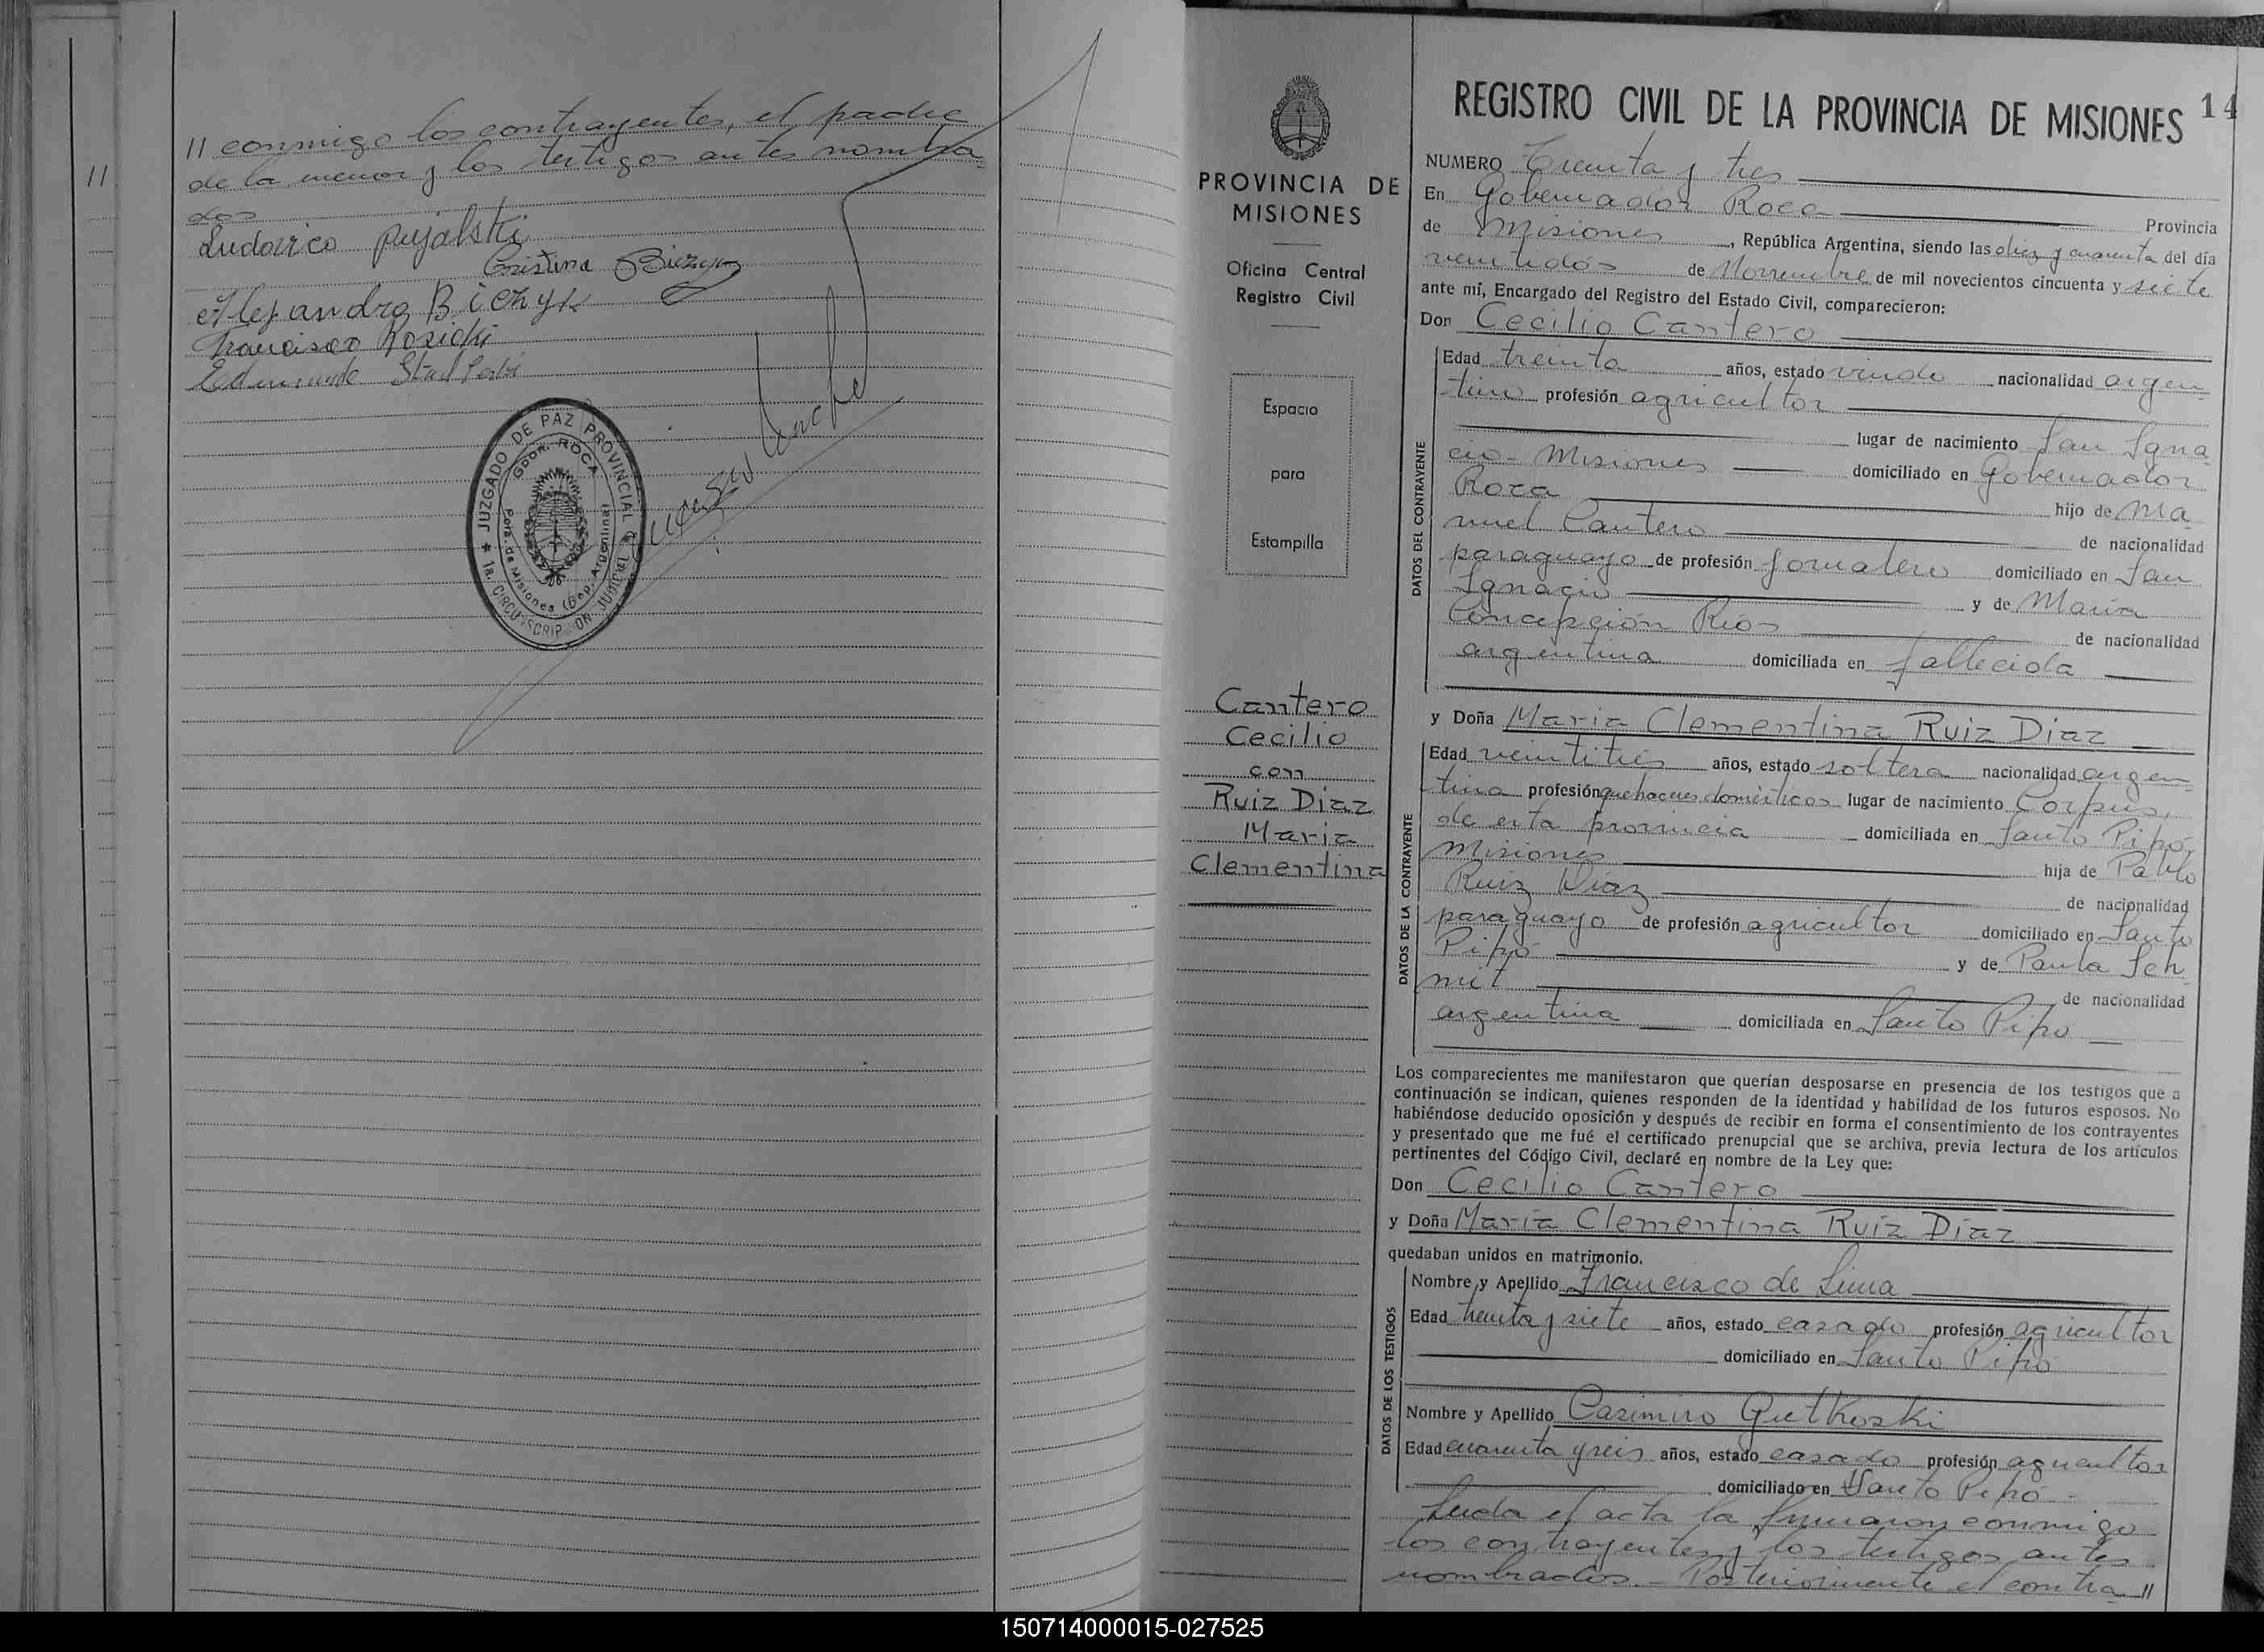 11
// conmigo los contrayentes, el padre
de la menor y los testigos antes nombra-
dos
Ludovico Pujalski
Cristina Biczyk
Alejandro Biczyk
Francisco Kosicki
Edmundo
★ JUZGADO DE PAZ PROVINCIAL ★ 1a. CIRCUNSCRIPCION JUDICIAL
GDOR. ROCA
Pcia. de Misiones (Rep. Argentina)
PROVINCIA DE
MISIONES
Oficina Central
Registro Civil
Espacio
para
Estampilla
Cantero
Cecilio
con
Ruiz Diaz
Maria
Clementina
REGISTRO CIVIL DE LA PROVINCIA DE MISIONES 14
NUMERO Treinta y tres
En Gobernador Roca Provincia
de Misiones, República Argentina, siendo las diez y cuarenta del día
veintidós de Noviembre de mil novecientos cincuenta y siete
ante mí, Encargado del Registro del Estado Civil, comparecieron:
Don Cecilio Cantero
DATOS DEL CONTRAYENTE
Edad treinta años, estado viudo nacionalidad argen-
tino profesión agricultor
lugar de nacimiento San Igna
cio - Misiones domiciliado en Gobernador
Roca hijo de Ma
nuel Cantero de nacionalidad
paraguayo de profesión jornalero domiciliado en San
Ignacio y de María
Concepción Ríos de nacionalidad
argentina domiciliada en fallecida
y Doña Maria Clementina Ruiz Diaz
DATOS DE LA CONTRAYENTE
Edad veintitrés años, estado soltera nacionalidad argen
tina profesión quehaceres domésticos lugar de nacimiento Corpus,
de esta provincia domiciliada en Santo Pipó,
Misiones hija de Pablo
Ruiz Díaz de nacionalidad
paraguayo de profesión agricultor domiciliado en Santo
Pipó y de Paula Sch
mit de nacionalidad
argentina domiciliada en Santo Pipo
Los comparecientes me manifestaron que querían desposarse en presencia de los testigos que a
continuación se indican, quienes responden de la identidad y habilidad de los futuros esposos. No
habiéndose deducido oposición y después de recibir en forma el consentimiento de los contrayentes
y presentado que me fué el certificado prenupcial que se archiva, previa lectura de los artículos
pertinentes del Código Civil, declaré en nombre de la Ley que:
Don Cecilio Cantero
y Doña María Clementina Ruíz Díaz
quedaban unidos en matrimonio.
DATOS DE LOS TESTIGOS
Nombre y Apellido Francisco de Lima
Edad treinta y siete años, estado casado profesión agricultor
domiciliado en Santo Pipó
Nombre y Apellido Casimiro Gutkoski
Edad cuarenta y seis años, estado casado profesión agricultor
domiciliado en Santo Pipó -
Leida el acta la firmaron conmigo
los contrayentes y los testigos antes
nombrados. - Posteriormente el contra //
150714000015-027525